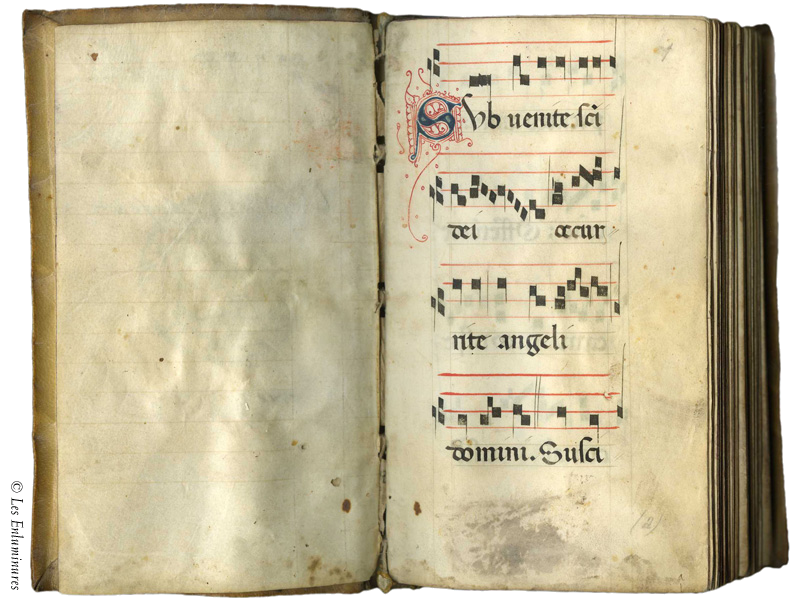 Sub uenite sc̃i
dei occur
rite angeli
domini. Susci
(2)
© Les Enluminures